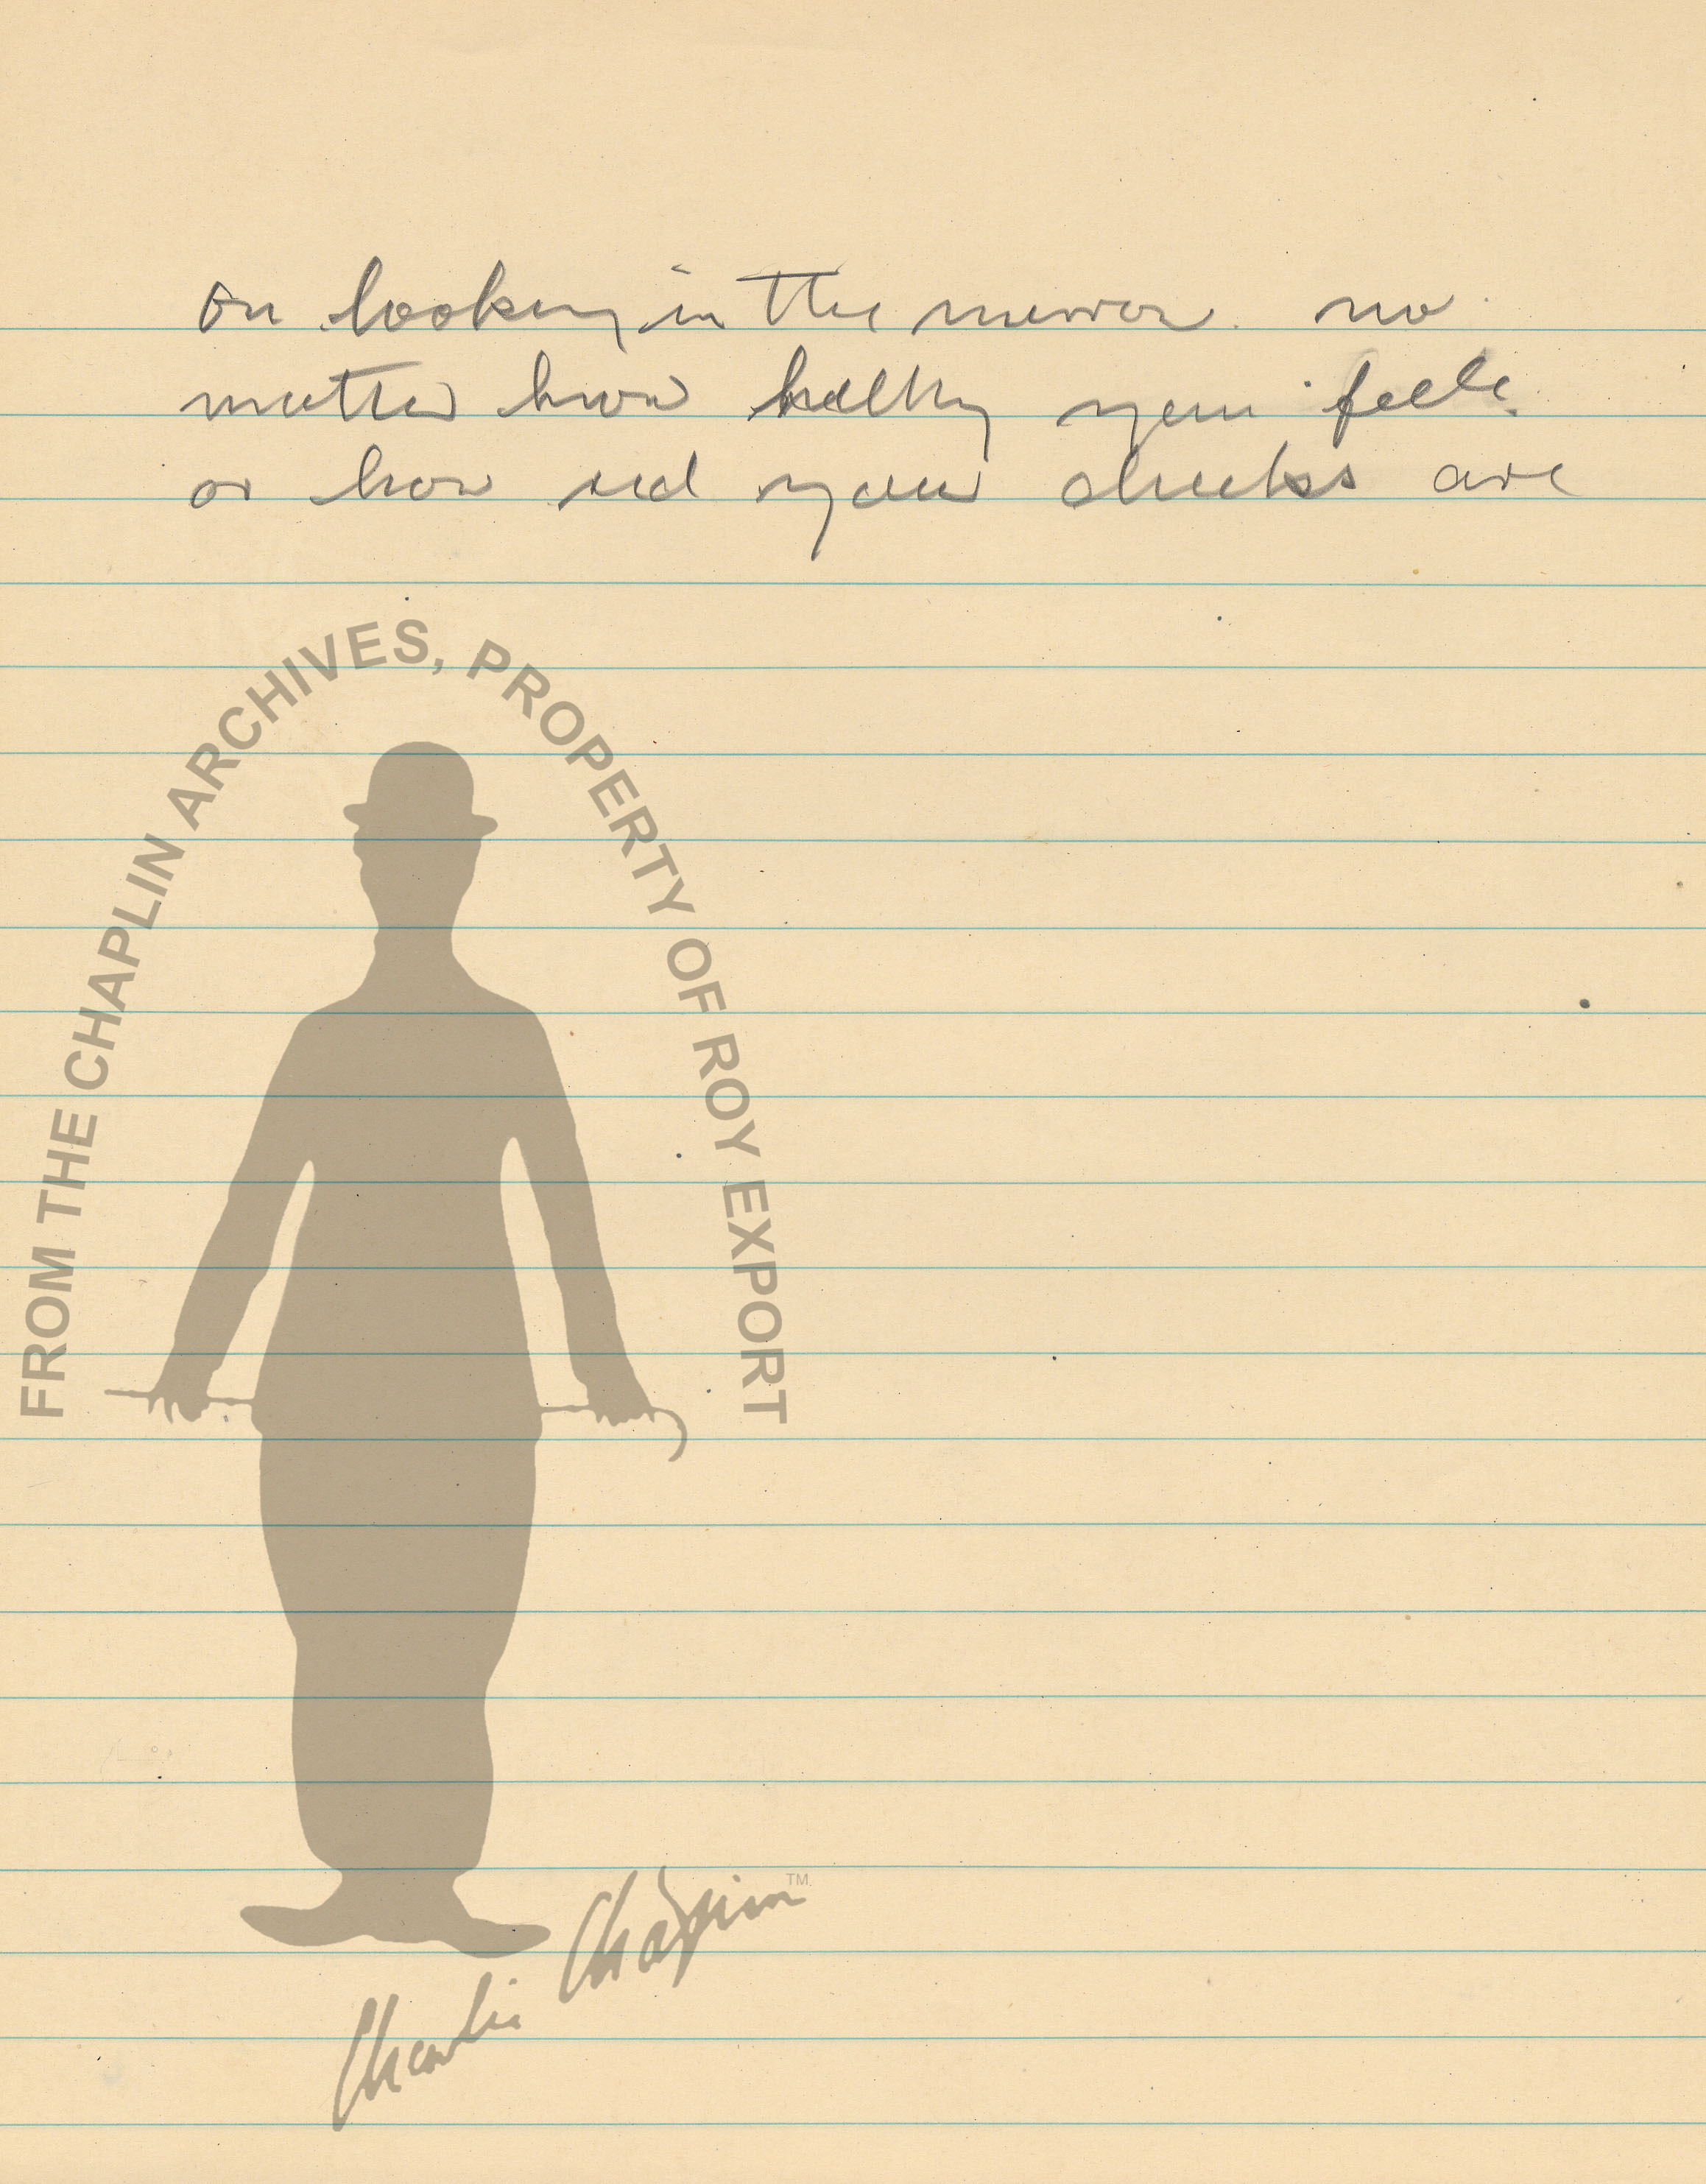 on looking in the mirror. no
matter how healthy you feel.
or how red your cheeks are
FROM THE CHAPLIN ARCHIVES, PROPERTY OF ROY EXPORT
Charlie Chaplin TM